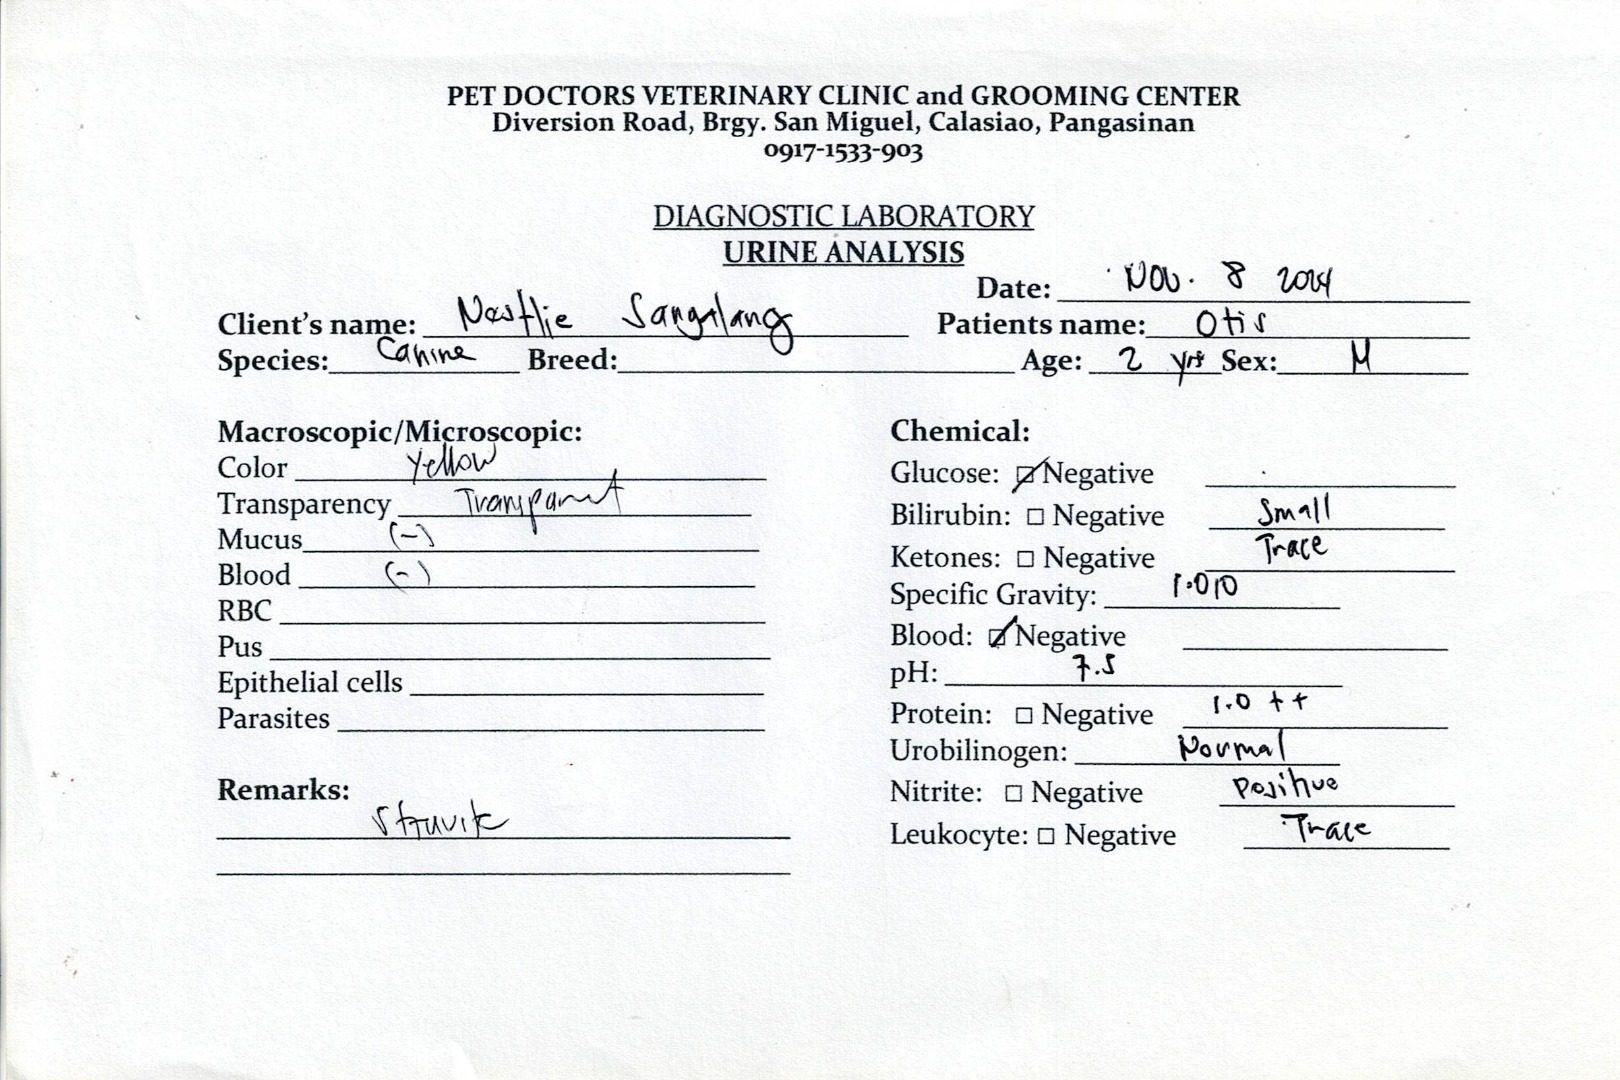 PET DOCTORS VETERINARY CLINIC and GROOMING CENTER
Diversion Road, Brgy. San Miguel, Calasiao, Pangasinan
0917-1533-903
DIAGNOSTIC LABORATORY
URINE ANALYSIS
Date: Nov. 8 2024
Client's name: Sangalang Patients name: Otis
Species: Canine Breed: Age: 2 yrs Sex: M
Macroscopic/Microscopic:
Color Yellow
Transparency Transparent
Mucus (-)
Blood (-)
RBC
Pus
Epithelial cells
Parasites
Remarks:
Struvite
Chemical:
Glucose: ☑ Negative
Bilirubin: ☐ Negative Small
Ketones: ☐ Negative Trace
Specific Gravity: 1.010
Blood: ☑ Negative
pH: 7.5
Protein: ☐ Negative 1.0 ++
Urobilinogen: Normal
Nitrite: ☐ Negative Positive
Leukocyte: ☐ Negative Trace